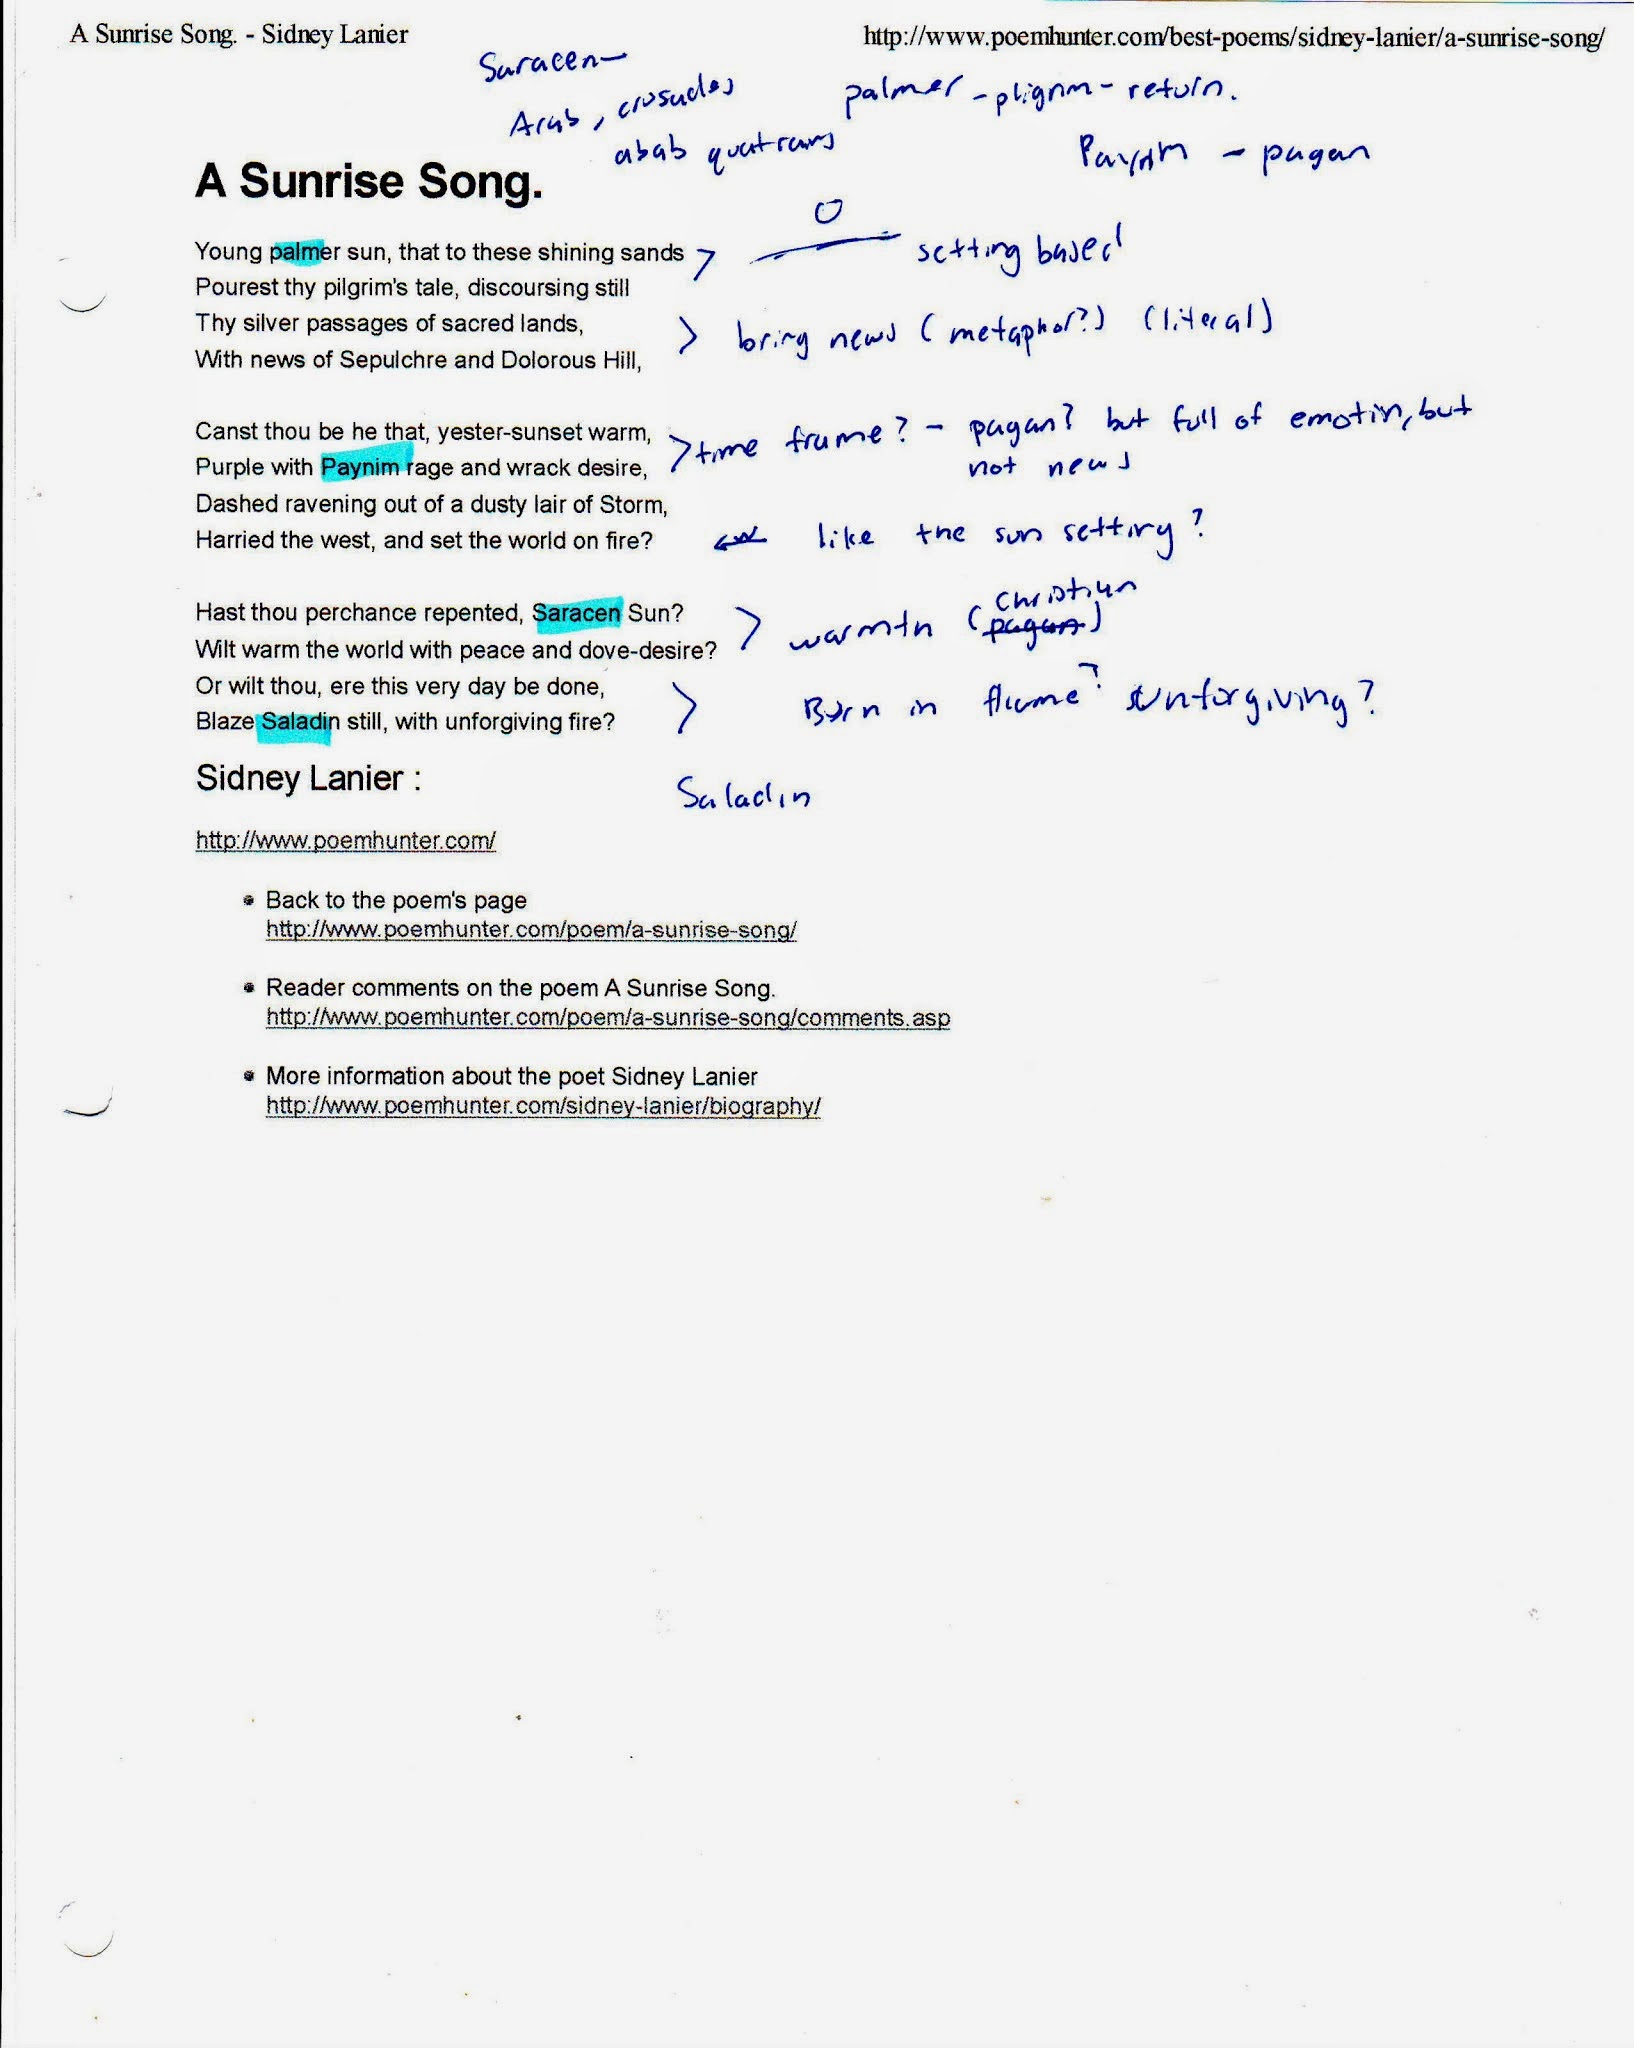 A Sunrise Song. - Sidney Lanier
http://www.poemhunter.com/best-poems/sidney-lanier/a-sunrise-song/
Saracen—
Arab, crusades
abab quatrains
palmer - pligrim - return.
Paynim - pagan
A Sunrise Song.
Young palmer sun, that to these shining sands
setting based
Pourest thy pilgrim's tale, discoursing still
Thy silver passages of sacred lands,
bring news (metaphor?) (literal)
With news of Sepulchre and Dolorous Hill,
Canst thou be he that, yester-sunset warm,
>time frame? - pagan? but full of emotin, but
not news
Purple with Paynim rage and wrack desire,
Dashed ravening out of a dusty lair of Storm,
Harried the west, and set the world on fire?
like the sun setting?
Hast thou perchance repented, Saracen Sun?
Christian
warmth (pagan)
Wilt warm the world with peace and dove-desire?
Or wilt thou, ere this very day be done,
Burn in flame? unforgiving?
Blaze Saladin still, with unforgiving fire?
Sidney Lanier :
Saladin
http://www.poemhunter.com/
• Back to the poem's page
http://www.poemhunter.com/poem/a-sunrise-song/
• Reader comments on the poem A Sunrise Song.
http://www.poemhunter.com/poem/a-sunrise-song/comments.asp
• More information about the poet Sidney Lanier
http://www.poemhunter.com/sidney-lanier/biography/